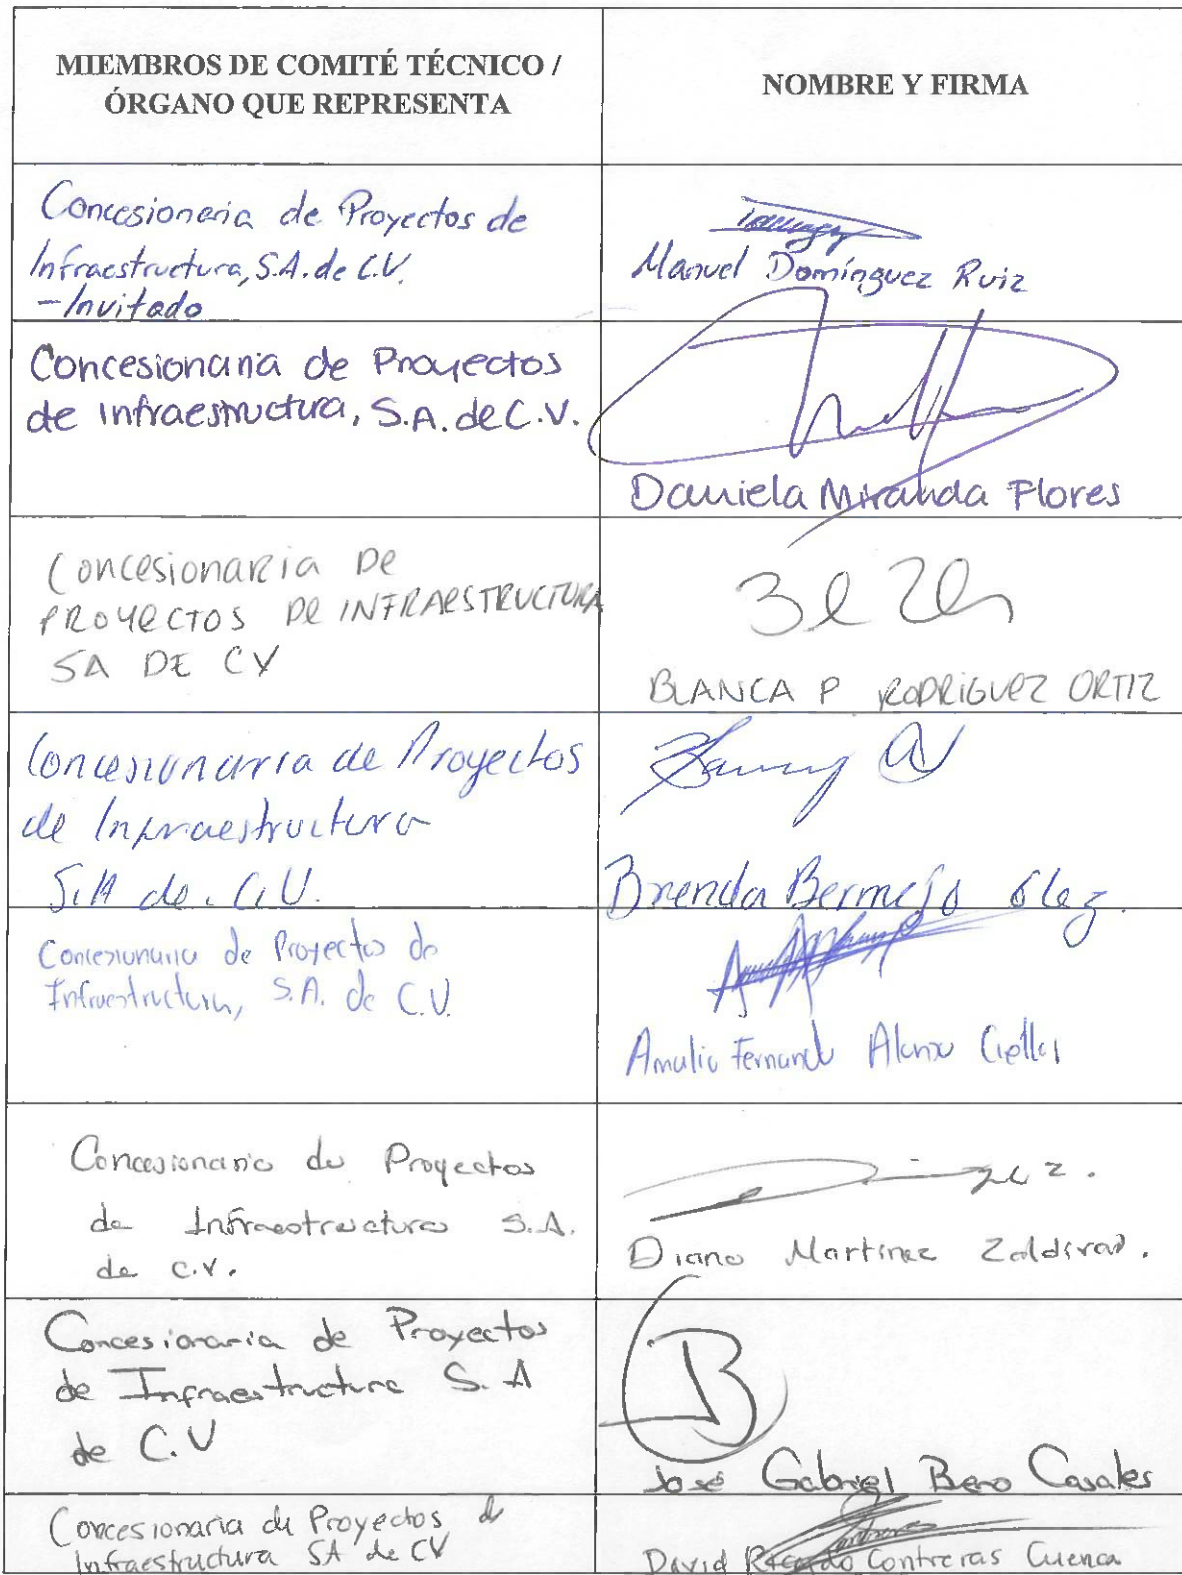 MIEMBROS DE COMITÉ TÉCNICO /
ÓRGANO QUE REPRESENTA
NOMBRE Y FIRMA
Concesionaria de Proyectos de
Infraestructura, S.A. de C.V.
- Invitado
Manuel Domínguez Ruiz
Concesionaria de Proyectos
de Infraestructura, S.A. de C.V.
Daniela Miranda Flores
Concesionaria De
PROYECTOS De INFRAESTRUCTURA
SA DE CV
BLANCA P RODRIGUEZ ORTIZ
Concesionaria de Proyectos
de Infraestructura
S.A de C.V.
Brenda Bermejo
Concesionaria de Proyectos de
Infraestructura, S.A. de C.V.
Fernando
Concesionaria de Proyectos
de Infraestructura S.A.
de C.V.
Diana Martinez Zaldivar.
Concesionaria de Proyectos
de Infraestructura S. A
de C.V
José Gabriel Casales
Concesionaria de Proyectos de
Infraestructura SA de CV
David Ricardo Contreras Cuenca